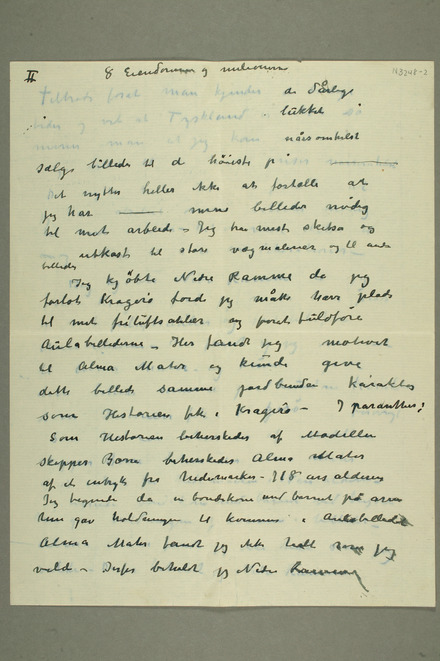 II
8 Eiendommer og millionær
N 3248-2
Tiltrods foret man kjender de dårlige
tider og ved at Tyskland lukket så
mener man at jeg kan nårsomhelst
sælge billeder til de høieste priser
Det nytter heller ikke at fortælle at
jeg har mine billeder nødig
til mit arbeide – Jeg har mest skitser og
utkast til store vægmalerier og til andre
billeder
Jeg kjøbte Nedre Ramme da jeg
forlot Kragerø fordi jeg måtte have plads
til mit friluftsatelier og foret fuldføre
Aulabillederne – Her fandt jeg motivet
til Alma Mater og kunde give
dette billede samme jordbundne karakter
som Historien fik i Kragerø – I parantes:
Som Historien beherskedes af Modellen
skipper Børre beherskedes Alma Mater
af et indtryk fra Nedermarken – I 18 års alderen
Jeg begynte da en bondekone med barnet på armen
hun gav holdningen til konen i Aulabilledet
Alma Mater fandt jeg ikke helt som jeg
vilde – Derfor beholdt jeg Nedre Ramme